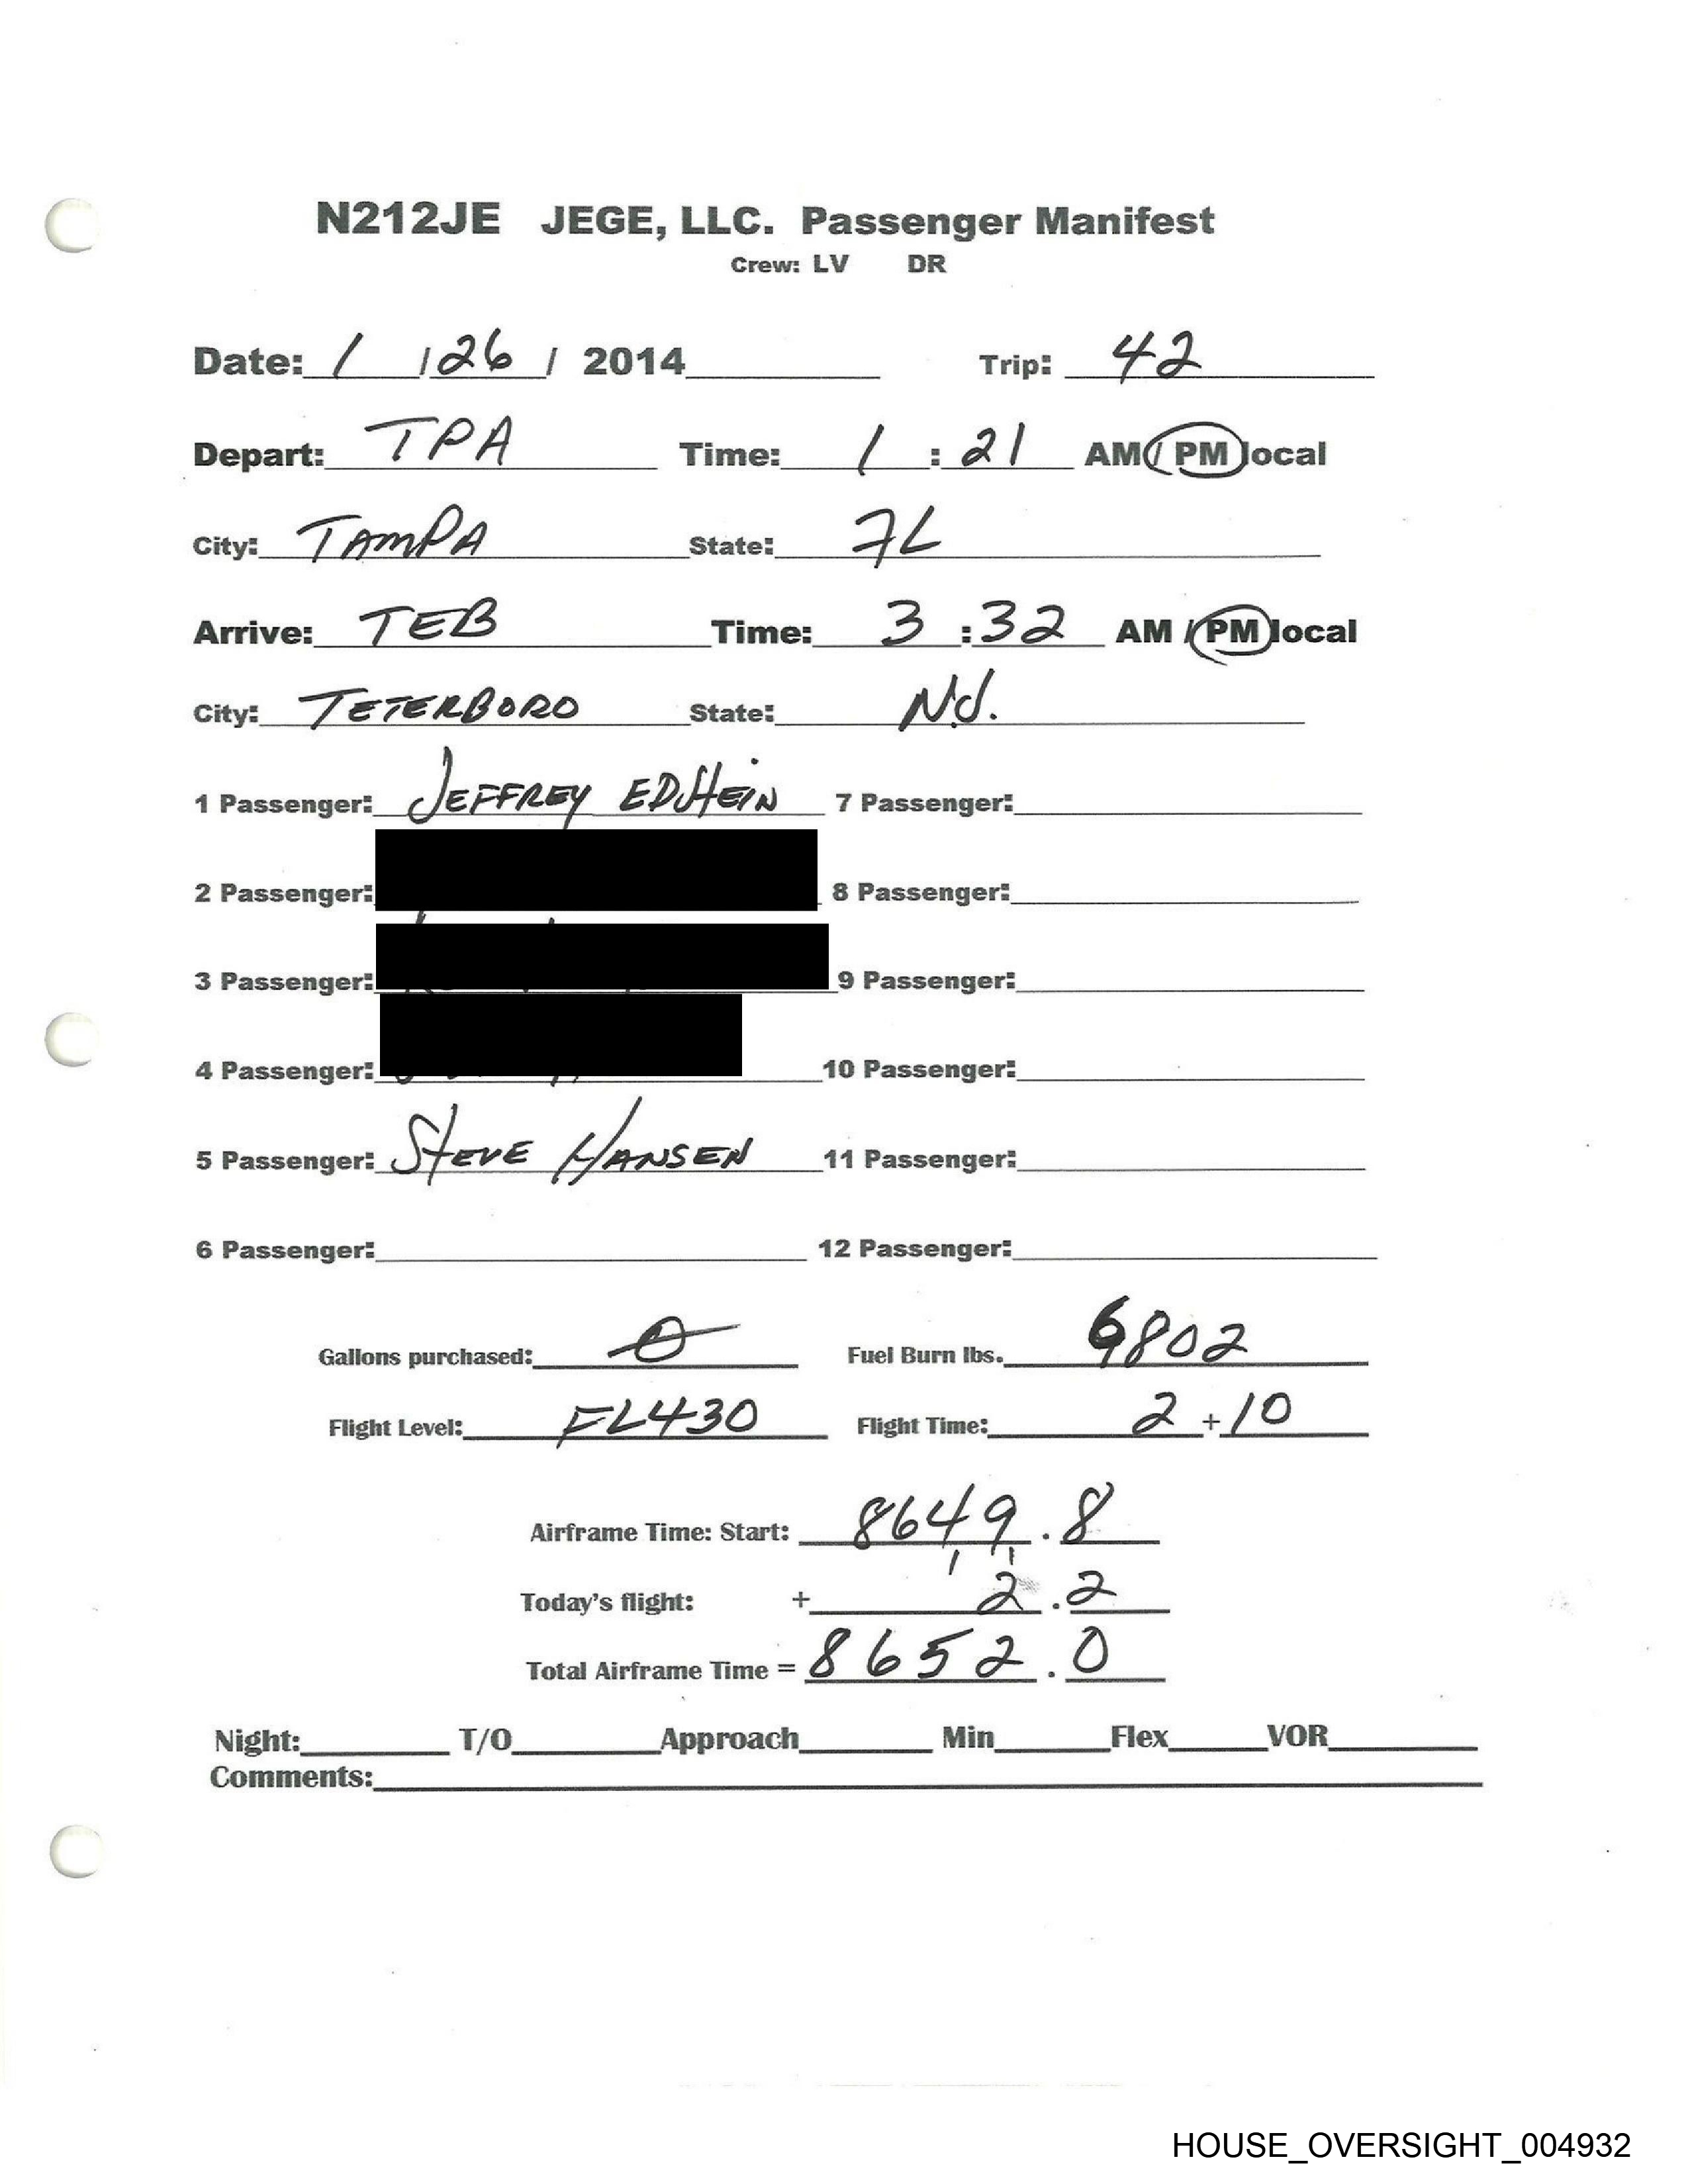 N212JE JEGE, LLC. Passenger Manifest
Crew: LV DR
Date: 1 / 26 / 2014 Trip: 42
Depart: TPA Time: 1 : 21 AM / PM local
City: TAMPA State: FL
Arrive: TEB Time: 3 : 32 AM / PM local
City: TETERBORO State: NJ.
1 Passenger: JEFFREY EPSTEIN 7 Passenger:
2 Passenger: 8 Passenger:
3 Passenger: 9 Passenger:
4 Passenger: 10 Passenger:
5 Passenger: STEVE HANSEN 11 Passenger:
6 Passenger: 12 Passenger:
Gallons purchased: 0 Fuel Burn lbs. 6802
Flight Level: FL430 Flight Time: 2 + 10
Airframe Time: Start: 8649 . 8
1 1
Today's flight: + 2 . 2
Total Airframe Time = 8652 . 0
Night: T/O Approach Min Flex VOR
Comments:
HOUSE_OVERSIGHT_004932